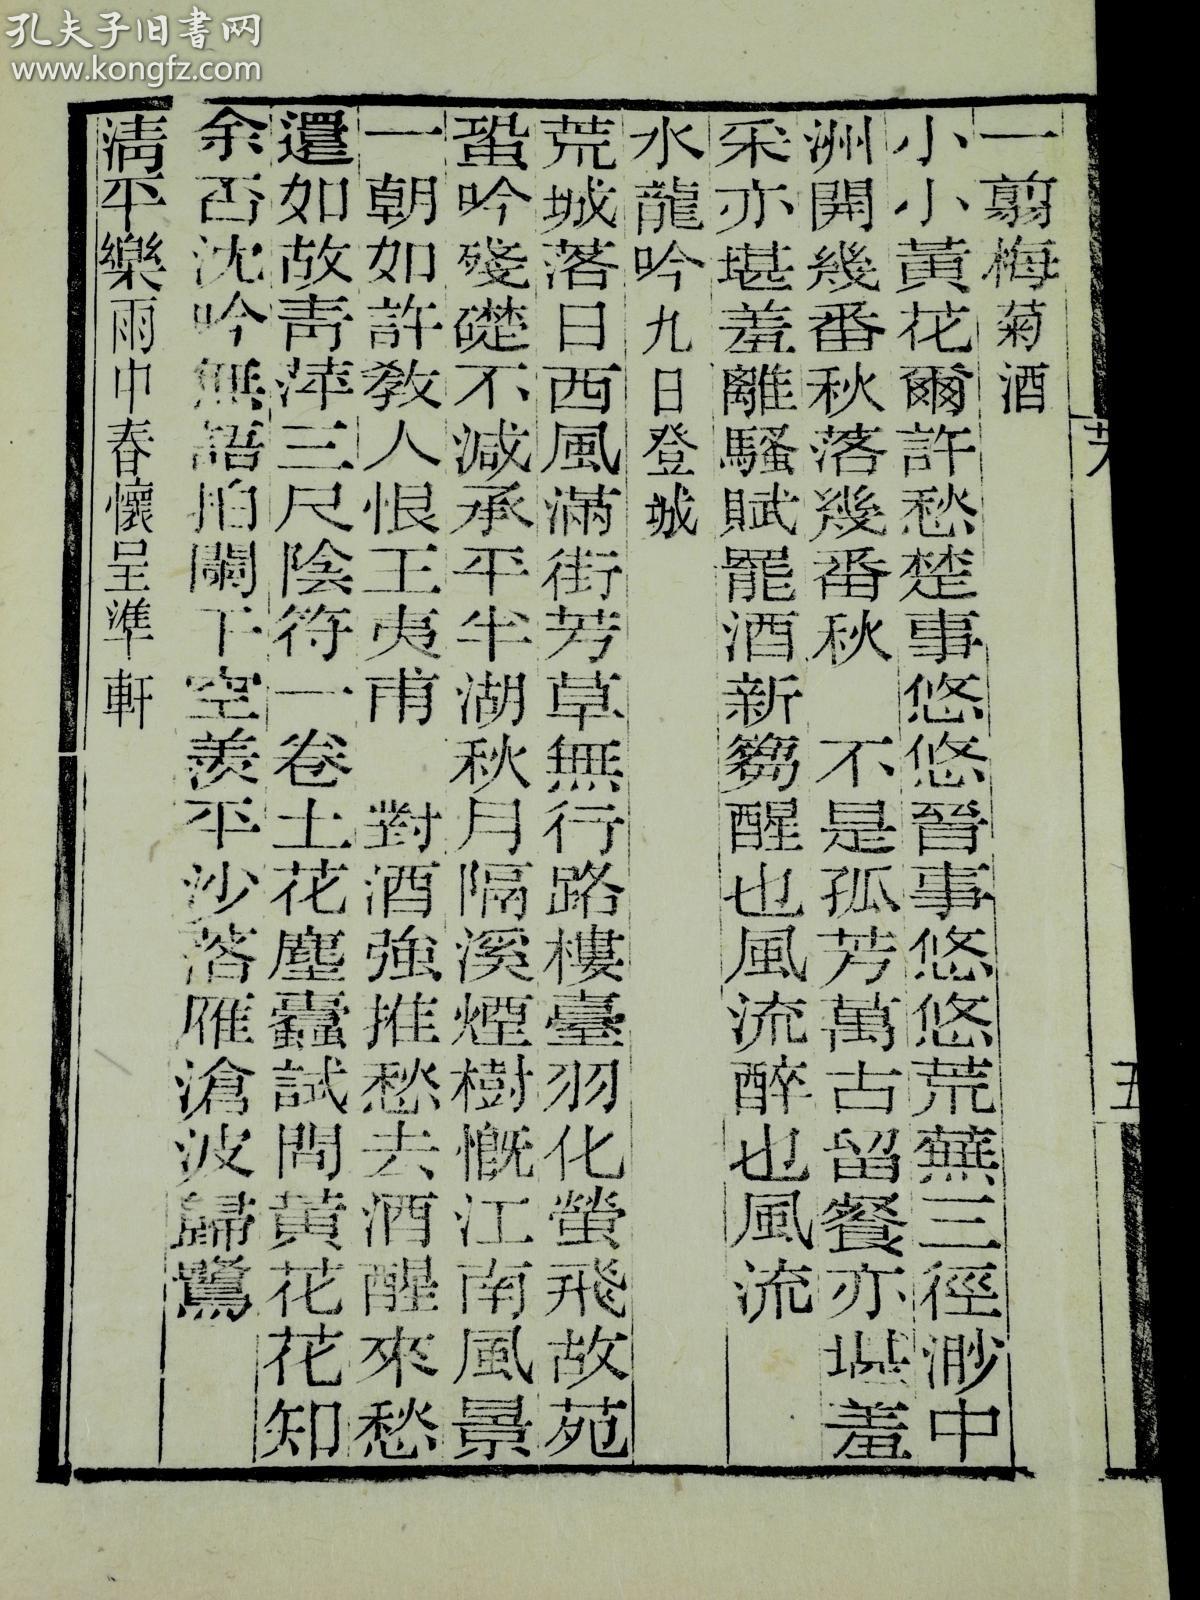 孔夫子旧書网
www.kongfz.com
一翦梅菊酒
小小黃花爾許愁楚事悠悠晉事悠悠荒蕪三徑渺中
洲開幾番秋落幾番秋 不是孤芳萬古留餐亦堪羞
采亦堪羞離騷賦罷酒新篘醒也風流醉也風流
水龍吟九日登城
荒城落日西風滿街芳草無行路樓臺羽化螢飛故苑
蛩吟殘礎不減承平半湖秋月隔溪煙樹慨江南風景
一朝如許教人恨王夷甫 對酒強推愁去酒醒來愁
還如故青萍三尺陰符一卷土花塵蠹試問黃花花知
余否沈吟無語拍闌干空羨平沙落雁滄波歸鷺
清平樂雨中春懷呈準軒
五